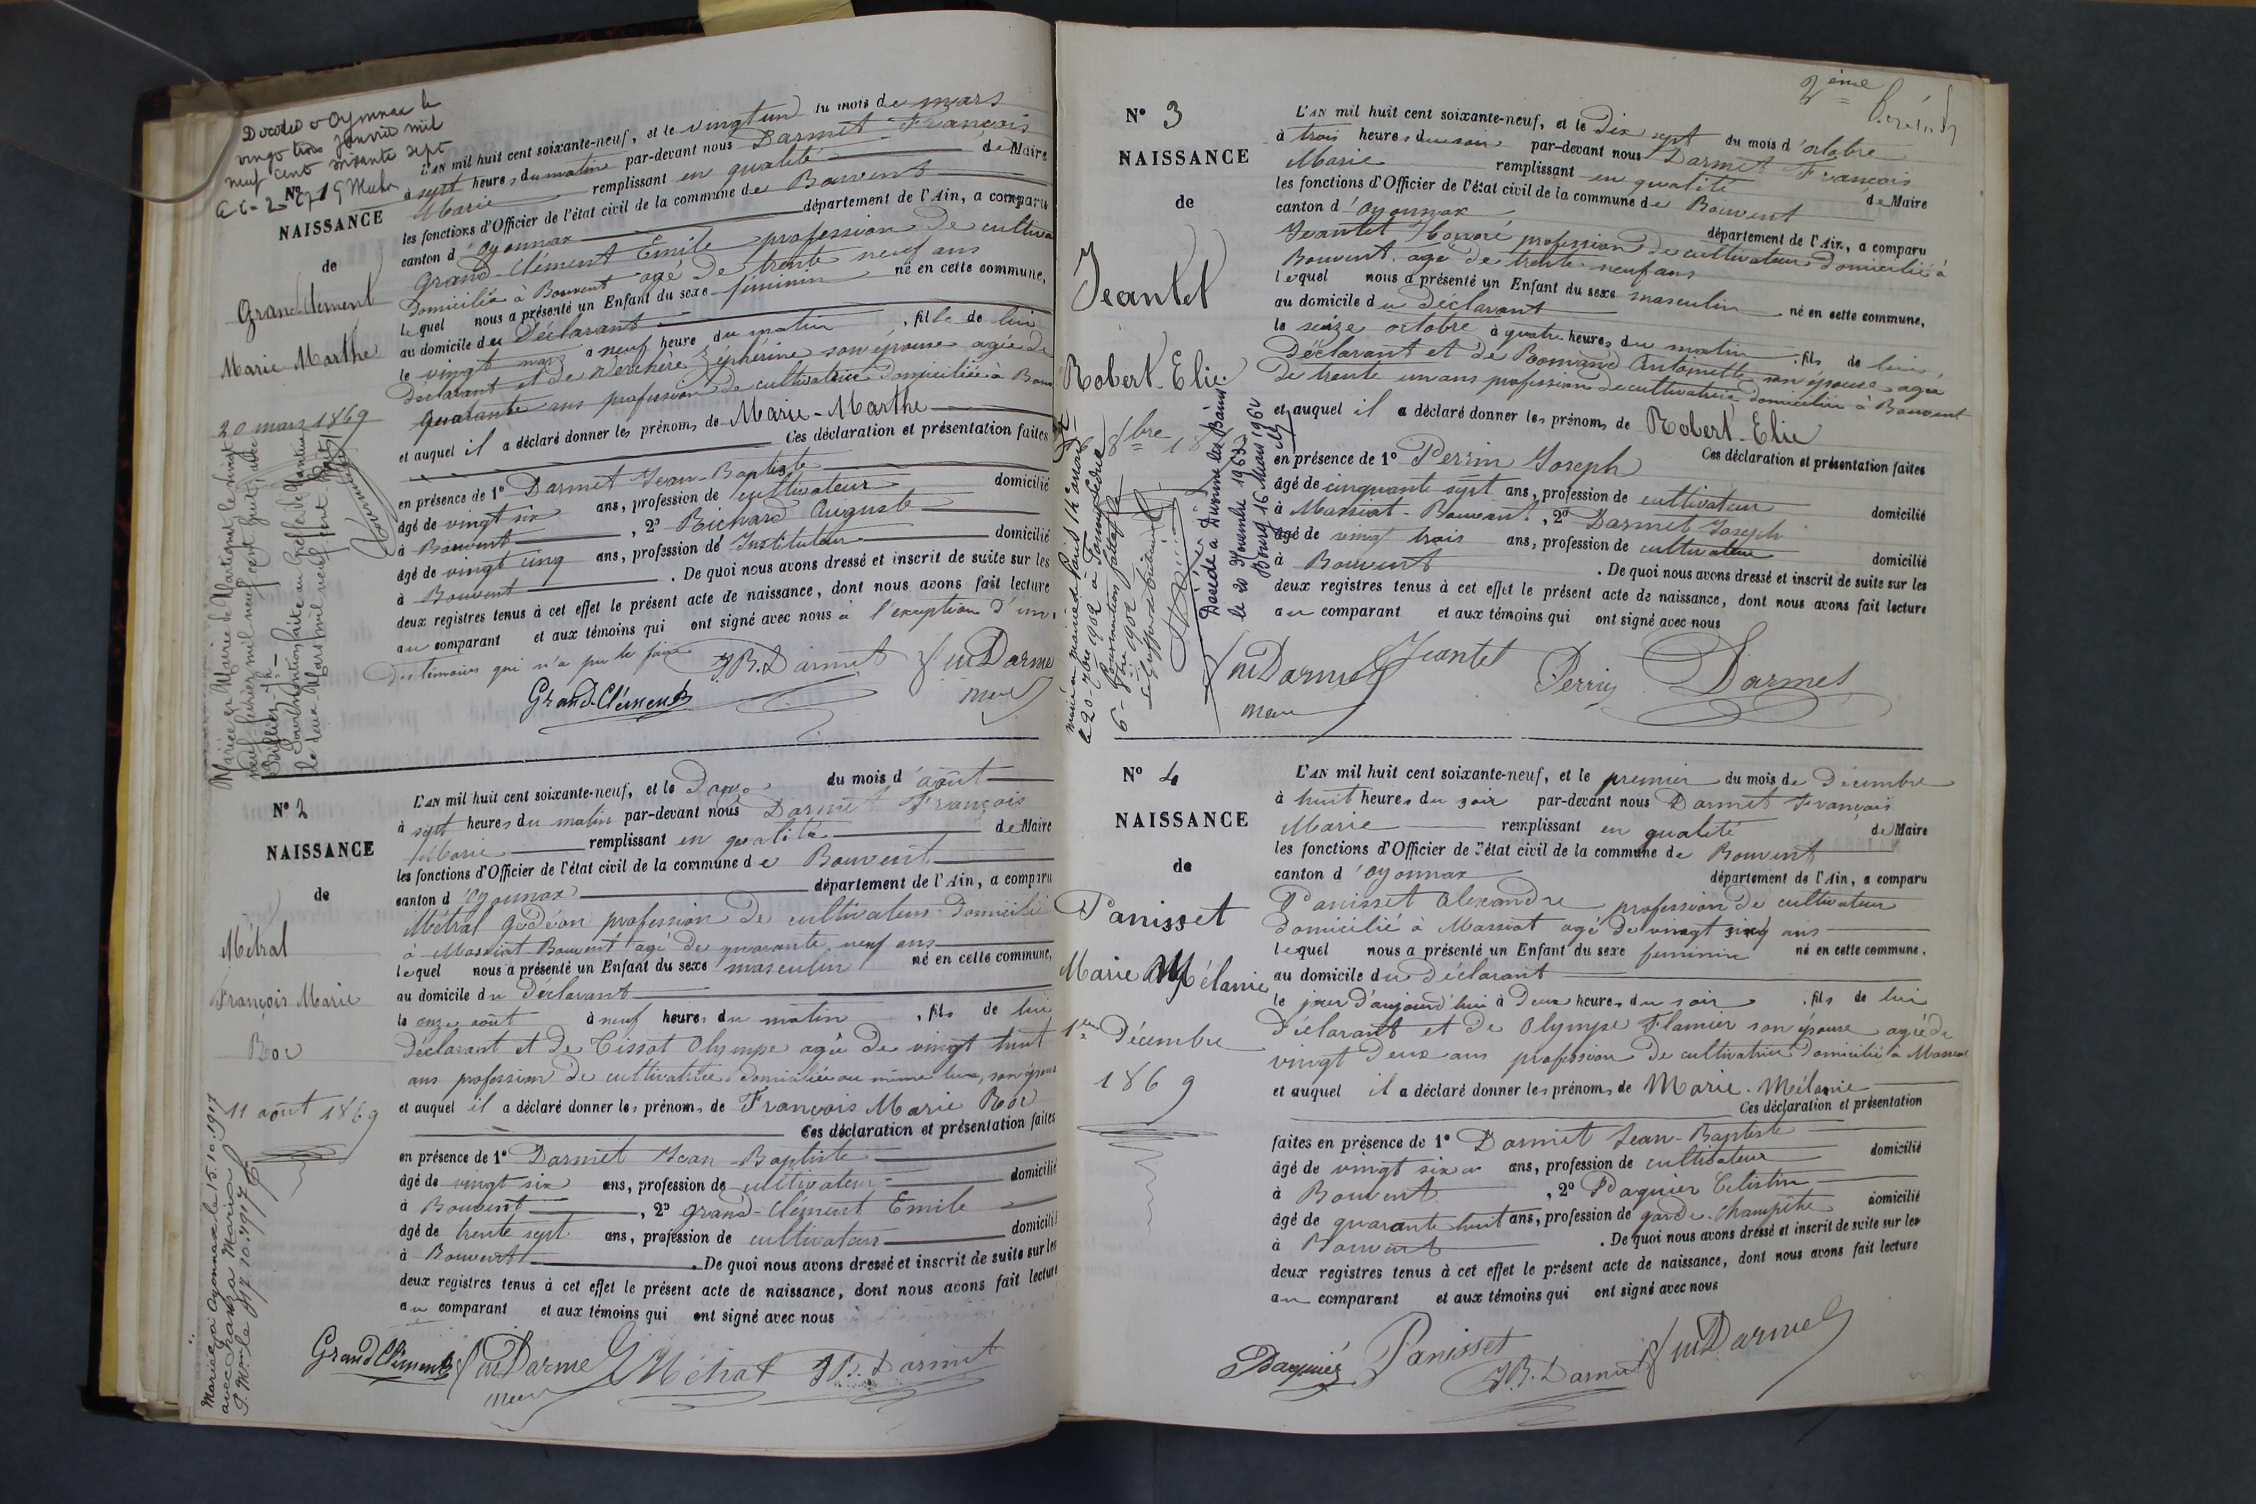 Décédée à Oyonnax le
vingt trois janvier mil
neuf cent soixante sept
N° 1
NAISSANCE
de
Grand-Clément
Marie Marthe
20 mars 1869
Mariée en Mairie de Martignat, le vingt
neuf février mil neuf cent huit, avec
le deux Mars mil neuf cent huit
L'AN mil huit cent soixante-neuf, et le vingt un du mois de mars
à sept heures du matin par-devant nous Darmet François
Marie remplissant en qualité de Maire
les fonctions d'Officier de l'état civil de la commune de Bouvent
canton d'Oyonnax département de l'Ain, a comparu
Grand-Clément Emile profession de cultiva
domicilié à Bouvent agé de trente neuf ans
lequel nous a présenté un Enfant du sexe féminin né en cette commune,
au domicile du Déclarant
le vingt mars à neuf heure du matin , fille de lui
déclarant et de Verchère Zéphérine son épouse agée de
quarante ans profession de cultivatrice domiciliée à Bouv
et auquel il a déclaré donner les prénoms de Marie-Marthe
Ces déclaration et présentation faites
en présence de 1° Darmet Jean-Baptiste
âgé de vingt six ans, profession de cultivateur domicilié
à Bouvent , 2° Richard Auguste
âgé de vingt cinq ans, profession de Instituteur domicilié
à Bouvent . De quoi nous avons dressé et inscrit de suite sur les
deux registres tenus à cet effet le présent acte de naissance, dont nous avons fait lecture
au comparant et aux témoins qui ont signé avec nous à l'exception d'un
des témoins qui n'a pu le faire
JB. Darmet
Darme
Grand-Clément
maire
N° 2
NAISSANCE
de
Métral
François Marie
Roc
11 août 1869
Marié à Oyonnax le 15.10.1917
avec
L'AN mil huit cent soixante-neuf, et le Douze du mois d'août
à sept heures du matin par-devant nous Darmet François
Marie remplissant en qualité de Maire
les fonctions d'Officier de l'état civil de la commune de Bouvent
canton d'Oyonnax département de l'Ain, a comparu
Métral Gédéon profession de cultivateur domicilié
à Massiat-Bouvent agé de quarante neuf ans
lequel nous a présenté un Enfant du sexe masculin né en cette commune,
au domicile du Déclarant
le onze août à neuf heures du matin , fils de lui
déclarant et de Tissot Olympe agée de vingt huit
ans profession de cultivatrice domiciliée au même lieu, son épouse
et auquel il a déclaré donner les prénoms de François Marie Roc
Ces déclaration et présentation faites
en présence de 1° Darmet Jean-Baptiste
âgé de vingt six ans, profession de cultivateur domicilié
à Bouvent , 2° Grand-Clément Emile
âgé de trente sept ans, profession de cultivateur domicilié
à Bouvent . De quoi nous avons dressé et inscrit de suite sur les
deux registres tenus à cet effet le présent acte de naissance, dont nous avons fait lecture
au comparant et aux témoins qui ont signé avec nous
Grand Clément
Darmet
Métral
JB. Darmet
2ème
N° 3
NAISSANCE
de
Jeantet
Robert-Elie
Décédé à Divonne les Bains
le 20 Novembre 1963
L'AN mil huit cent soixante-neuf, et le Dix sept du mois d'octobre
à trois heures du soir par-devant nous Darmet François
Marie remplissant en qualité de Maire
les fonctions d'Officier de l'état civil de la commune de Bouvent
canton d'Oyonnax département de l'Ain, a comparu
Jeantet Honoré profession de cultivateur domicilié à
Bouvent. agé de trente neuf ans
lequel nous a présenté un Enfant du sexe masculin né en cette commune,
au domicile du Déclarant
le seize octobre à quatre heures du matin , fils de lui
déclarant et de Romand Antoinette son épouse agée
de trente un ans profession de cultivatrice domiciliée à Bouvent
et auquel il a déclaré donner les prénoms de Robert-Elie
Ces déclaration et présentation faites
en présence de 1° Perrin Joseph
âgé de cinquante sept ans, profession de cultivateur domicilié
à Massiat-Bouvent , 2° Darmet Joseph
âgé de vingt trois ans, profession de cultivateur domicilié
à Bouvent . De quoi nous avons dressé et inscrit de suite sur les
deux registres tenus à cet effet le présent acte de naissance, dont nous avons fait lecture
au comparant et aux témoins qui ont signé avec nous
Darmet
Jeantet
Perrin
Darmet
maire
N° 4
NAISSANCE
de
Panisset
Marie Mélanie
1er Décembre
1869
L'AN mil huit cent soixante-neuf, et le premier du mois de Décembre
à huit heures du soir par-devant nous Darmet François
Marie remplissant en qualité de Maire
les fonctions d'Officier de l'état civil de la commune de Bouvent
canton d'Oyonnax département de l'Ain, a comparu
Panisset Alexandre profession de cultivateur
domicilié à Massiat agé de vingt cinq ans
lequel nous a présenté un Enfant du sexe féminin né en cette commune.
au domicile du Déclarant
le jour d'aujourd'hui à Deux heures du soir , fils de lui
déclarant et de Olympe Flamier son épouse agée de
vingt deux ans profession de cultivatrice domicilié à Massiat
et auquel il a déclaré donner les prénoms de Marie. Mélanie
Ces déclaration et présentation
faites en présence de 1° Darmet Jean-Baptiste
âgé de vingt six ans, profession de cultivateur domicilié
à Bouvent , 2° Paquier Célestin
âgé de quarante huit ans, profession de garde-champêtre domicilié
à Bouvent . De quoi nous avons dressé et inscrit de suite sur les
deux registres tenus à cet effet le présent acte de naissance, dont nous avons fait lecture
au comparant et aux témoins qui ont signé avec nous
Paquier
Panisset
JB. Darmet
Darmet